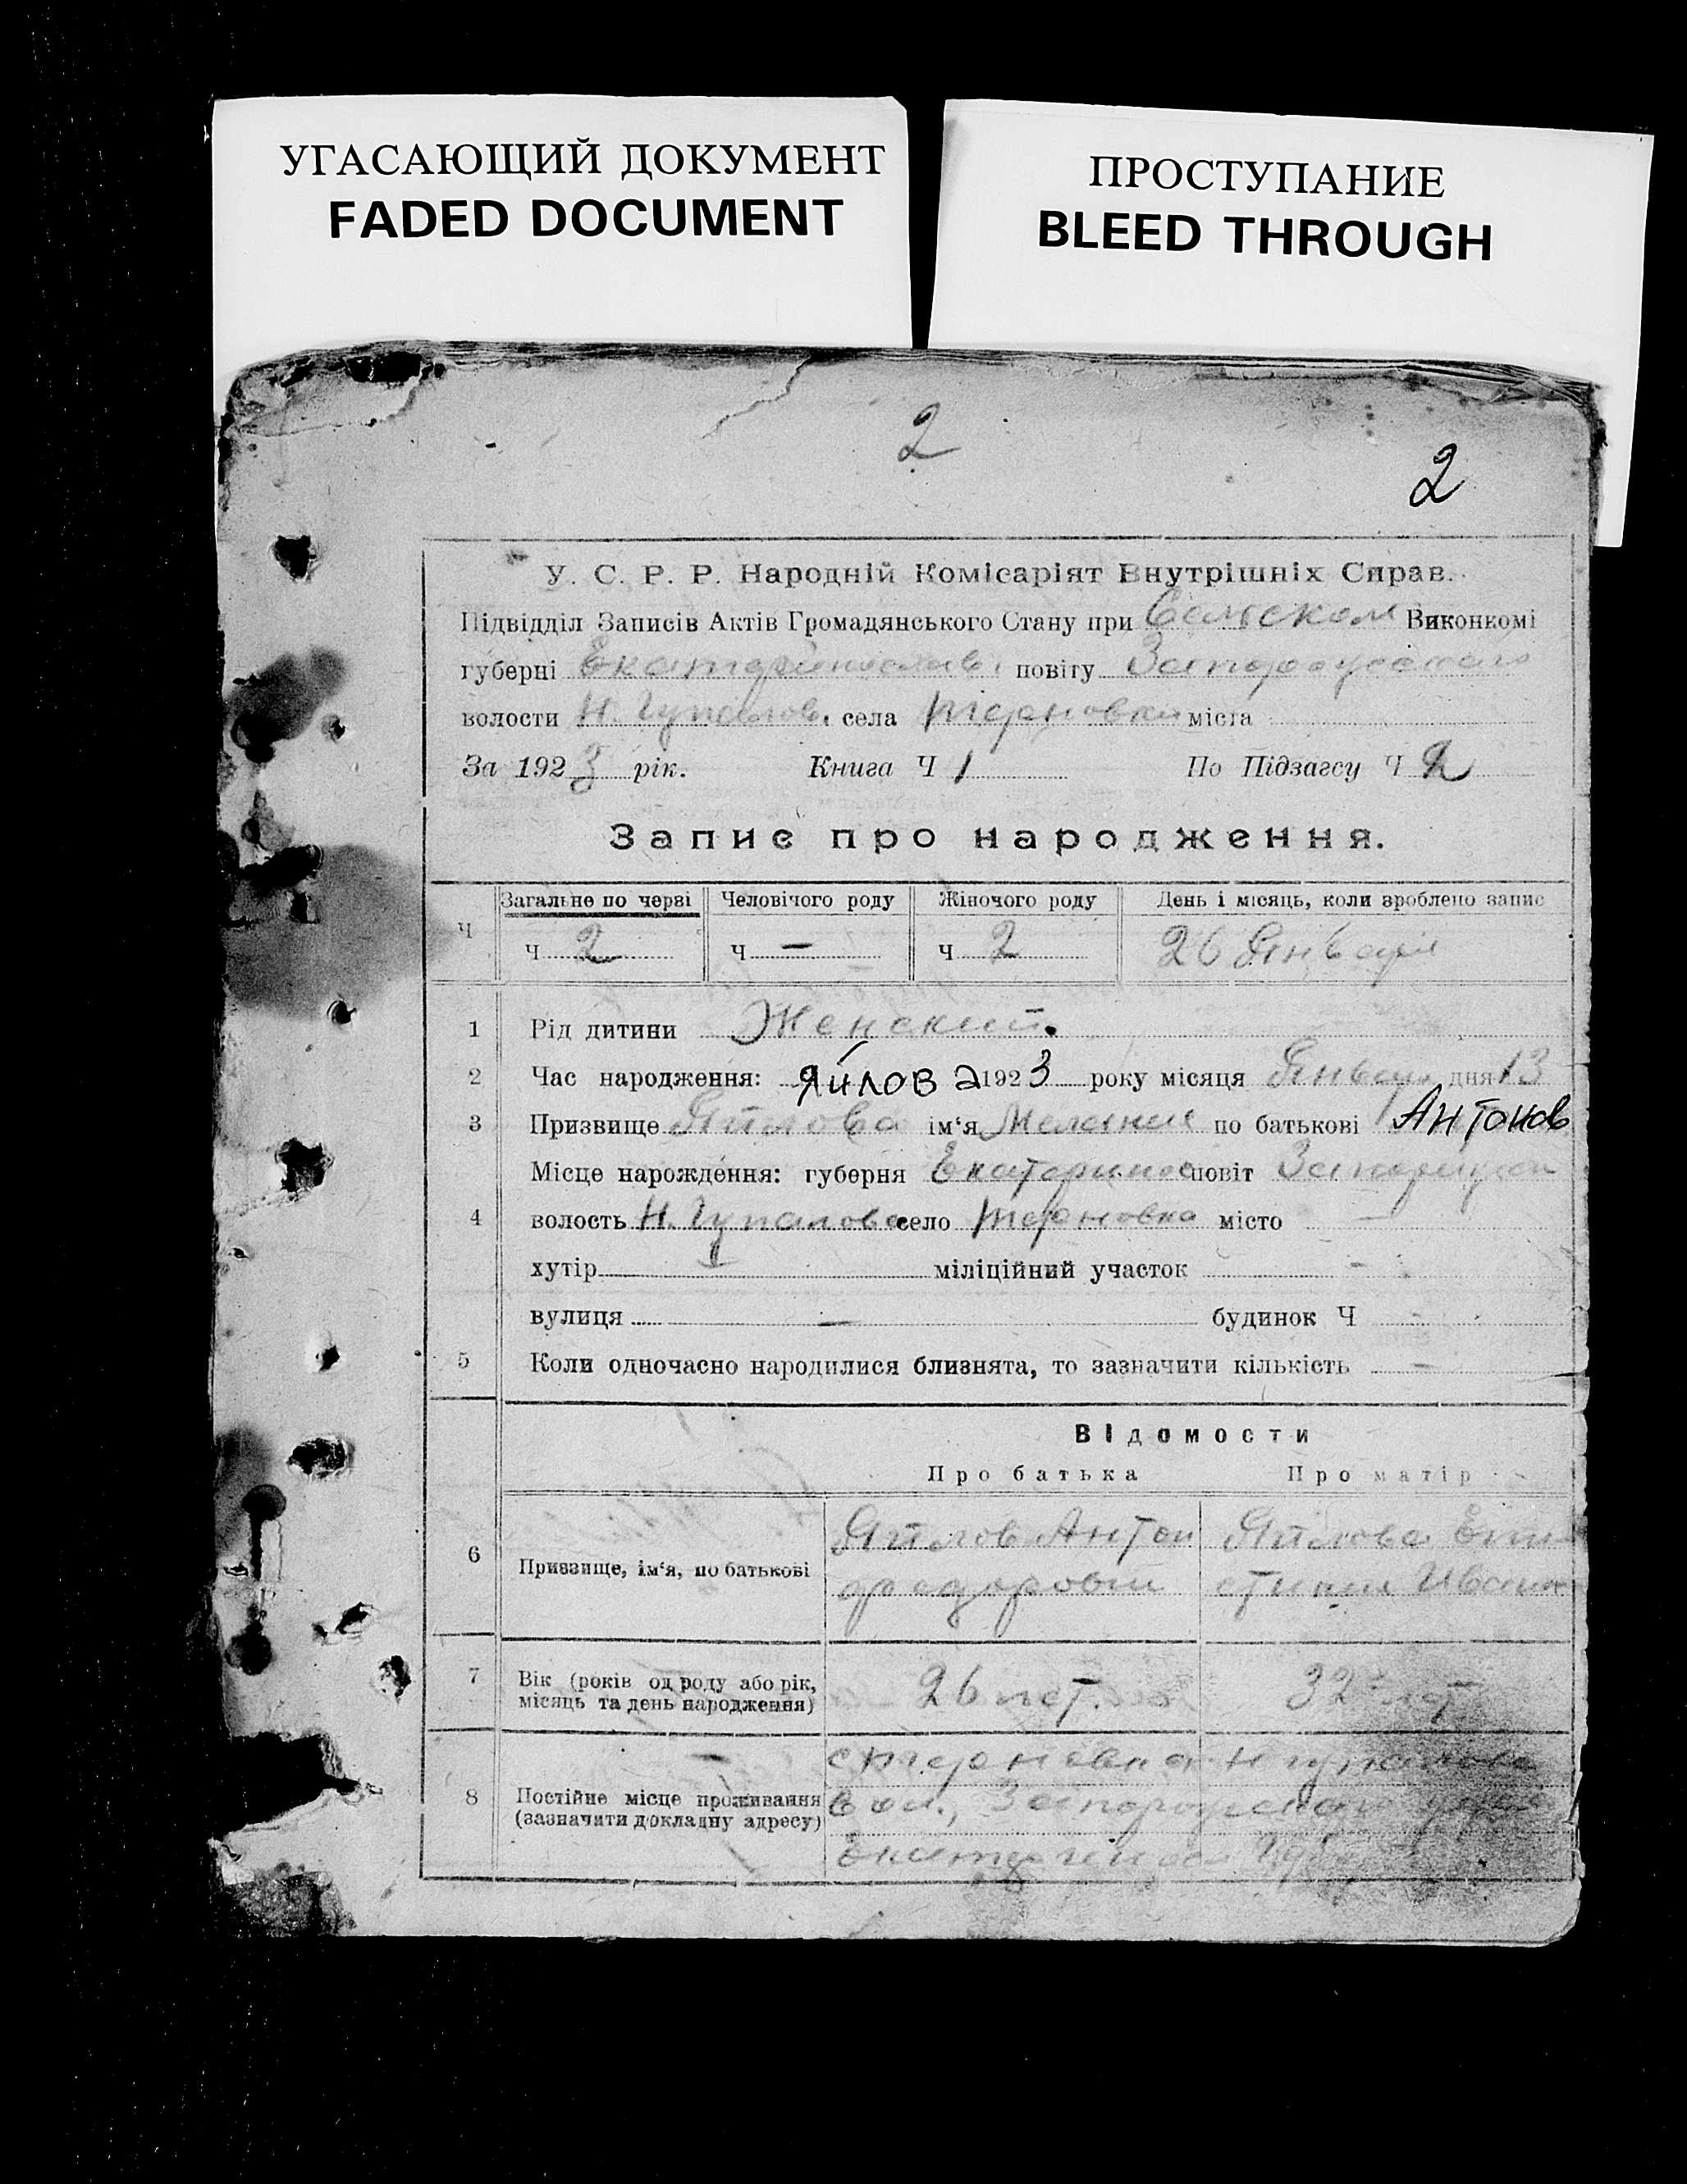 УГАСАЮЩИЙ ДОКУМЕНТ
FADED DOCUMENT
ПРОСТУПАНИЕ
BLEED THROUGH
2
2
У. С. Р. Р. Народній Комісаріят Внутрішніх Справ.
Підвідділ Записів Актів Громадянського Стану при Сельском Виконкомі
губерні Екатеринослав. повіту Запорожского
волости Н. Гупалов. села Терновки міста
За 1923 рік. Книга Ч 1 По Підзагсу Ч 2
Запис про народження.
Загальне по черзі Человічого роду Жіночого роду День і місяць, коли зроблено запис
Ч Ч 2 Ч — Ч 2 26 Января
1 Рід дитини Женский.
2 Час народження: Яйлова 1923 року місяця Января дня 13
3 Призвище Яйлова ім'я Мелания по батькові Антонов
Місце нарождення: губерня Екатеринос повіт Запорожск
4 волость Н. Гупалова село Терновка місто —
хутір — міліційний участок -
вулиця — будинок Ч -
5 Коли одночасно народилися близнята, то зазначити кількість -
Відомости
Про батька Про матір
6 Призвище, ім'я, по батькові
Яйлов Антон Яйлова
Иван
7 Вік (років од роду або рік, місяць та день народження) 26 лет. 32 лет
8 Постійне місце проживання (зазначити докладну адресу)
с Терновка Н Гупалова
вол., Запорожского
Екатеринос